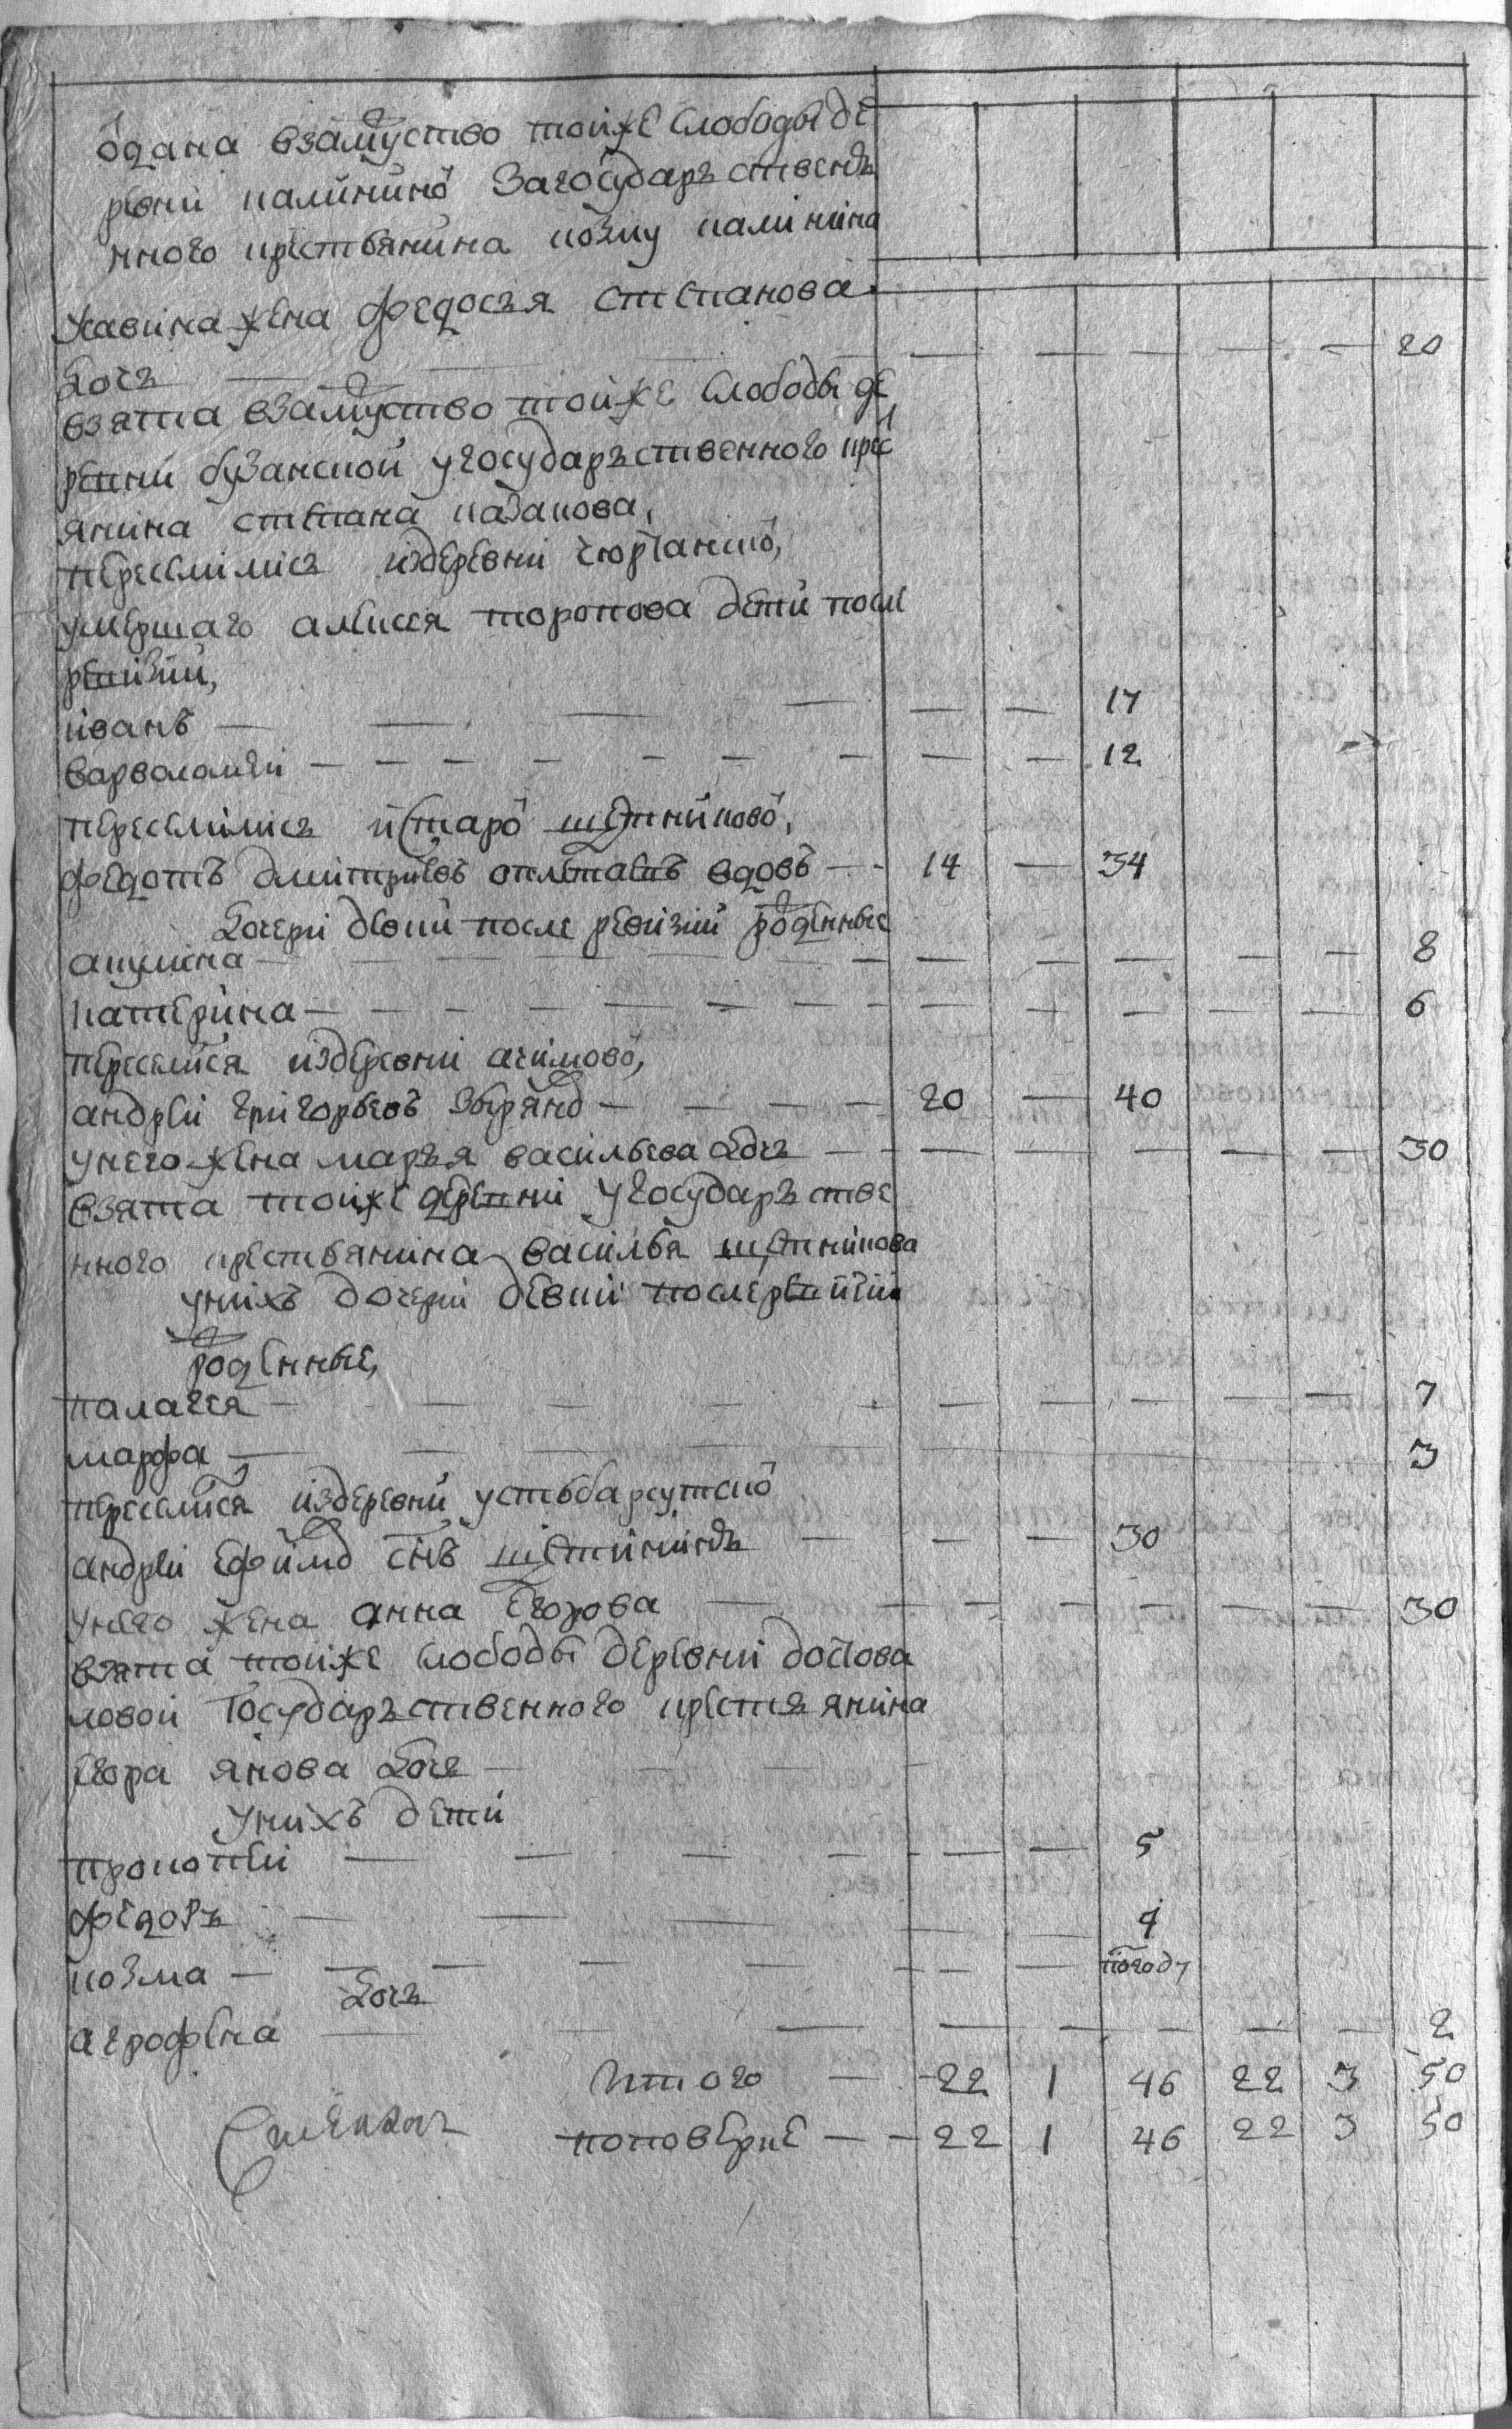 одана взамуство тойже слободы де
ревни калинино загосударъственъ
нного крестьянина козму калинина
Усавина жена федосъя степанова
дочъ — — — — — — — 20
взята взамуство тойже слободы де
ревни бузанской угосударъственного крес
янина степана казакова,
переселились издеревни
умершаго алексея торопова дети после
ревизии,
иванъ — — — — — — 17
варфаламеи — — — — — — — — — 12
переселились истаро щетниково,
федотъ дмитриевъ вдовъ — 14 — 34
дочери девки после ревизии роденные
акулина — — — — — — — — 8
катерина — — — — — — — — 6
переселился издеревни ачимово,
андреи григорьевъ — — — — 20 — 40
унего жена маръя васильева дочъ — — — — — — — 30
взята тойже деревни угосударъстве
нного крестьянина василья щетникова
унихъ дочери девки послеревизии
роденные,
палагея — — — — — — — — 7
марфа — — — — 3
переселился издеревни устьбаркутско
андреи ефимо снъ — — — 30
унего жена анна егорова — — — — — — — 30
взята тойже слободы деревни
ловой государъственного крестъянина
егора янова дочь — — —
унихъ дети
прокопеи — — — — — — 5
федоръ — — — — — 4
козма — — — — — — — погоду
дочъ
аграфена — — — — — — — — 2
Итого — 22 1 46 22 3 50
поповерке — — 22 1 46 22 3 50